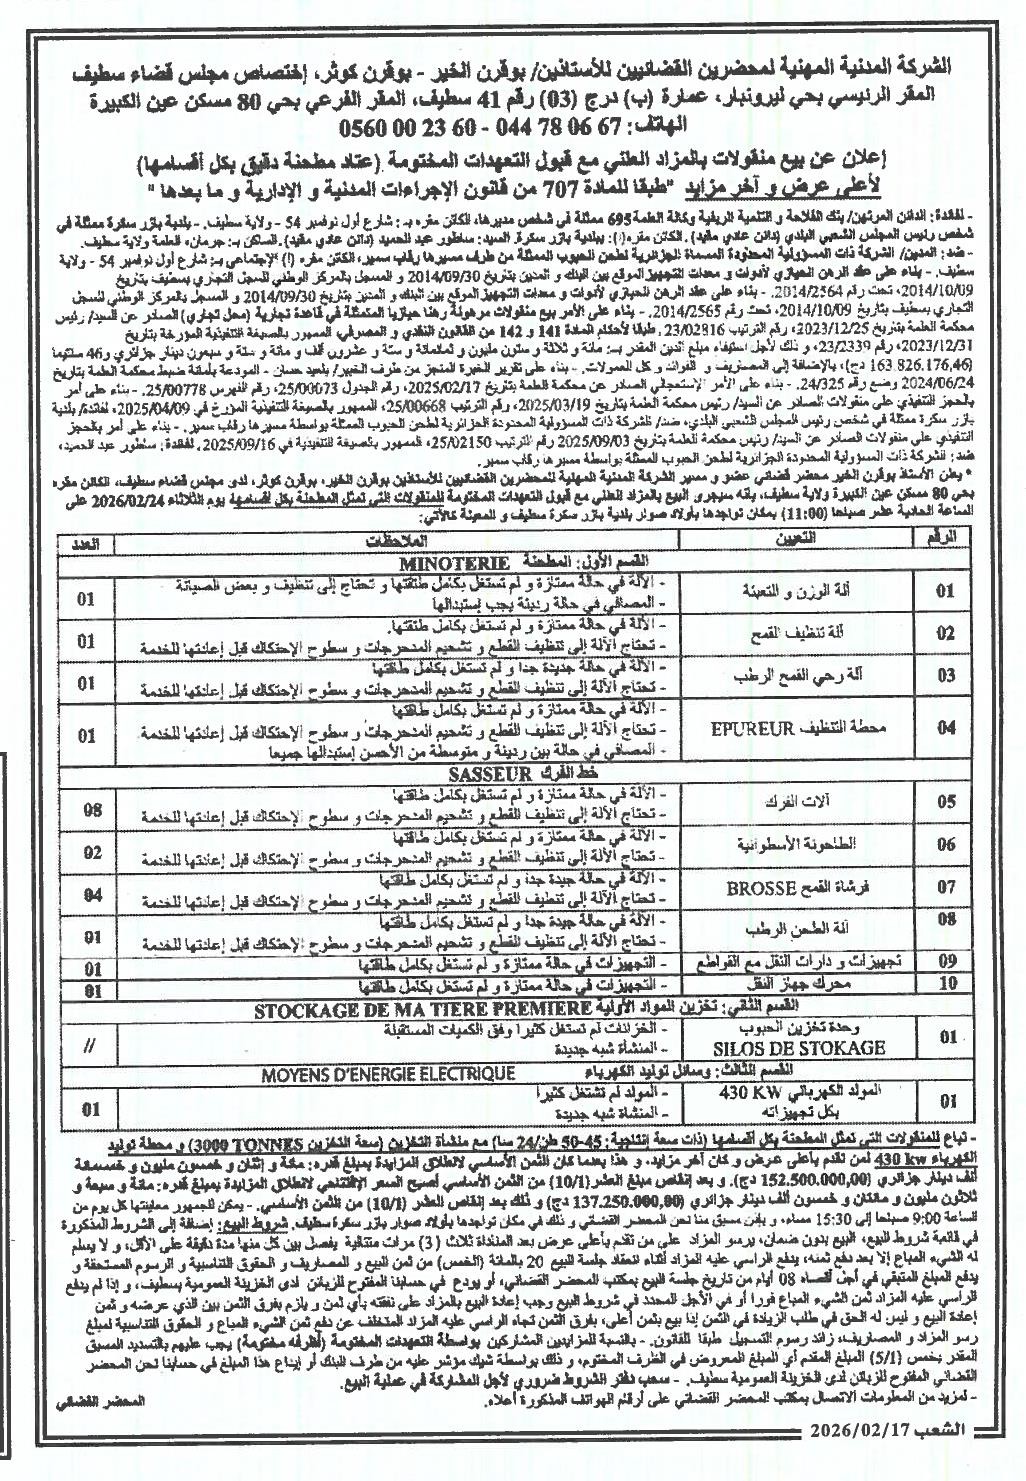 الشركة المدنية المهنية لمحضرين القضائيين للأستاذين/ بوقرن الخير - بوقرن كوثر، إختصاص مجلس قضاء سطيف
المقر الرئيسي بحي ليرونبار، عمارة (ب) درج (03) رقم 41 سطيف، المقر الفرعي بحي 80 مسكن عين الكبيرة
الهاتف: 67 06 78 044 - 60 23 00 0560
إعلان عن بيع منقولات بالمزاد العلني مع قبول التعهدات المختومة (عتاد مطحنة دقيق بكل أقسامها)
لأعلى عرض و آخر مزايد "طبقا للمادة 707 من قانون الإجراءات المدنية و الإدارية و ما بعدها"
- لفائدة: الدائن المرتهن/ بنك الفلاحة و التنمية الريفية وكالة العلمة 695 ممثلة في شخص مديرها، الكائن مقره بـ: شارع أول نوفمبر 54 - ولاية سطيف. - بلدية بازر سكرة ممثلة في
شخص رئيس المجلس الشعبي البلدي (دائن عادي مقيد). الكائن مقره(ا): ببلدية بازر سكرة. السيد: ساطور عبد الحميد (دائن عادي مقيد). الساكن بـ: جرمان، العلمة ولاية سطيف.
- ضد: المدين/ الشركة ذات المسؤولية المحدودة المسماة الجزائرية لطحن الحبوب الممثلة من طرف مسيرها رقاب سمير، الكائن مقره (ا) الإجتماعي بـ: شارع أول نوفمبر 54 - ولاية
سطيف. - بناء على عقد الرهن الحيازي لأدوات و معدات التجهيز الموقع بين البنك و المدين بتاريخ 2014/09/30 و المسجل بالمركز الوطني للسجل التجاري بسطيف بتاريخ
2014/10/09، تحت رقم 2014/2564. - بناء على عقد الرهن الحيازي لأدوات و معدات التجهيز الموقع بين البنك و المدين بتاريخ 2014/09/30 و المسجل بالمركز الوطني للسجل
التجاري بسطيف بتاريخ 2014/10/09، تحت رقم 2014/2565. - بناء على الأمر ببيع منقولات مرهونة رهنا حيازيا المتمثلة في قاعدة تجارية (محل تجاري) الصادر عن السيد/ رئيس
محكمة العلمة بتاريخ 2023/12/25، رقم الترتيب 23/02816. طبقا لأحكام المادة 141 و 142 من القانون النقدي و المصرفي الممهور بالصيغة التنفيذية المؤرخة بتاريخ
2023/12/31، رقم 23/2339، و ذلك لأجل استيفاء مبلغ الدين المقدر بـ: مائة و ثلاثة و ستون مليون و ثمانمائة و ستة و عشرون ألف و مائة و ستة و سبعون دينار جزائري و46 سنتيما
(163.826.176,46 دج)، بالإضافة إلى المصاريف و الفوائد و كل العمولات. - بناء على تقرير الخبرة المنجز من طرف الخبير/ بلعيد حسان - المودعة بأمانة ضبط محكمة العلمة بتاريخ
2024/06/24 وضع رقم 24/325. - بناء على الأمر الإستعجالي الصادر عن محكمة العلمة بتاريخ 2025/02/17، رقم الجدول 25/00073، رقم الفهرس 25/00778. - بناء على أمر
بالحجز التنفيذي على منقولات الصادر عن السيد/ رئيس محكمة العلمة بتاريخ 2025/03/19، رقم الترتيب 25/00668، الممهور بالصيغة التنفيذية المؤرخ في 2025/04/09، لفائدة/ بلدية
بازر سكرة ممثلة في شخص رئيس المجلس الشعبي البلدي، ضد/ الشركة ذات المسؤولية المحدودة الجزائرية لطحن الحبوب الممثلة بواسطة مسيرها رقاب سمير. - بناء على أمر بالحجز
التنفيذي على منقولات الصادر عن السيد/ رئيس محكمة العلمة بتاريخ 2025/09/03 رقم الترتيب 25/02150، الممهور بالصيغة التنفيذية في 2025/09/16. لفائدة: ساطور عبد الحميد،
ضد: الشركة ذات المسؤولية المحدودة الجزائرية لطحن الحبوب الممثلة بواسطة مسيرها رقاب سمير.
* يعلن الأستاذ بوقرن الخير محضر قضائي عضو و مسير الشركة المدنية المهنية للمحضرين القضائيين للأستاذين بوقرن الخير، بوقرن كوثر، لدى مجلس قضاء سطيف، الكائن مقره
بحي 80 مسكن عين الكبيرة ولاية سطيف، بأنه سيجرى البيع بالمزاد العلني مع قبول التعهدات المختومة للمنقولات التي تمثل المطحنة بكل اقسامها يوم الثلاثاء 2026/02/24 على
الساعة الحادية عشر صباحا (11:00) بمكان تواجدها بأولاد صوار بلدية بازر سكرة سطيف و المعينة كالآتي:
الرقم التعيين الملاحظات العدد
القسم الأول: المطحنة MINOTERIE
01 آلة الوزن و التعبئة - الآلة في حالة ممتازة و لم تستغل بكامل طاقتها و تحتاج إلى تنظيف و بعض الصيانة 01
- المصافي في حالة رديئة يجب إستبدالها
02 آلة تنظيف القمح - الآلة في حالة ممتازة و لم تستغل بكامل طاقتها. 01
تحتاج الآلة إلى تنظيف القطع و تشحيم المدحرجات و سطوح الإحتكاك قبل إعادتها للخدمة
03 آلة رحي القمح الرطب - الآلة في حالة جديدة جدا و لم تستغل بكامل طاقتها 01
- تحتاج الآلة إلى تنظيف القطع و تشحيم المدحرجات و سطوح الإحتكاك قبل إعادتها للخدمة
04 محطة التنظيف EPUREUR - الآلة في حالة ممتازة و لم تستغل بكامل طاقتها 01
- تحتاج الآلة إلى تنظيف القطع و تشحيم المدحرجات و سطوح الإحتكاك قبل إعادتها للخدمة
- المصافي في حالة بين رديئة و متوسطة من الأحسن إستبدالها جميعا
خط الفرك SASSEUR
05 آلات الفرك - الآلة في حالة ممتازة و لم تستغل بكامل طاقتها 08
تحتاج الآلة إلى تنظيف القطع و تشحيم المدحرجات و سطوح الإحتكاك قبل إعادتها للخدمة
06 الطاحونة الأسطوانية - الآلة في حالة ممتازة و لم تستغل بكامل طاقتها 02
تحتاج الآلة إلى تنظيف القطع و تشحيم المدحرجات و سطوح الإحتكاك قبل إعادتها للخدمة
07 فرشاة القمح BROSSE - الآلة في حالة جيدة جدا و لم تستغل بكامل طاقتها 04
تحتاج الآلة إلى تنظيف القطع و تشحيم المدحرجات و سطوح الإحتكاك قبل إعادتها للخدمة
08 آلة الطحن الرطب - الآلة في حالة جيدة جدا و لم تستغل بكامل طاقتها 01
تحتاج الآلة إلى تنظيف القطع و تشحيم المدحرجات و سطوح الإحتكاك قبل إعادتها للخدمة
09 تجهيزات و دارات النقل مع القواطع - التجهيزات في حالة ممتازة و لم تستغل بكامل طاقتها 01
10 محرك جهاز النقل - التجهيزات في حالة ممتازة و لم تستغل بكامل طاقتها 01
القسم الثاني: تخزين المواد الأولية STOCKAGE DE MA TIERE PREMIERE
01 وحدة تخزين الحبوب - الخزانات لم تستغل كثيرا وفق الكميات المستقبلة //
SILOS DE STOKAGE - المنشأة شبه جديدة
القسم الثالث: وسائل توليد الكهرباء MOYENS D'ENERGIE ELECTRIQUE
01 المولد الكهربائي 430 KW - المولد لم تشتغل كثيرا 01
بكل تجهيزاته - المنشاة شبه جديدة
- تباع للمنقولات التي تمثل المطحنة بكل أقسامها (ذات سعة إنتاجية: 45-50 طن/24 سا) مع منشأة التخزين (سعة التخزين 3000 TONNES) و محطة توليد
الكهرباء 430 kw لمن تقدم بأعلى عرض و كان آخر مزايد، و هذا بعدما كان الثمن الأساسي لانطلاق المزايدة بمبلغ قدره: مائة و إثنان و خمسون مليون و خمسمائة
ألف دينار جزائري (152.500.000,00 دج). و بعد إنقاص مبلغ العشر (10/1) من الثمن الأساسي أصبح السعر الإفتتاحي لانطلاق المزايدة بمبلغ قدره: مائة و سبعة و
ثلاثون مليون و مائتان و خمسون ألف دينار جزائري (137.250.000,00 دج) و ذلك بعد إنقاص العشر (10/1) من الثمن الأساسي. - يمكن للجمهور معاينتها كل يوم من
الساعة 9:00 صباحا إلى 15:30 مساء، و بإذن مسبق منا نحن المحضر القضائي و ذلك في مكان تواجدها بأولاد صوار بازر سكرة سطيف. شروط البيع: إضافة إلى الشروط المذكورة
في قائمة شروط البيع، البيع بدون ضمان، يرسو المزاد على من تقدم بأعلى عرض بعد المناداة ثلاث (3) مرات متتالية يفصل بين كل منها مدة دقيقة على الأقل، و لا يسلم
له الشيء المباع إلا بعد دفع ثمنه، يدفع الراسي عليه المزاد أثناء انعقاد جلسة البيع 20 بالمائة (الخمس) من ثمن البيع و المصاريف و الحقوق التناسبية و الرسوم المستحقة و
يدفع المبلغ المتبقي في أجل أقصاه 08 أيام من تاريخ جلسة البيع بمكتب المحضر القضائي، أو يودع في حسابنا المفتوح للزبائن لدى الخزينة العمومية بسطيف، و إذا لم يدفع
الراسي عليه المزاد ثمن الشيء المباع فورا أو في الأجل المحدد في شروط البيع وجب إعادة البيع بالمزاد على نفقته بأي ثمن و يلزم بفرق الثمن بين الذي عرضه و ثمن
إعادة البيع و ليس له الحق في طلب الزيادة في الثمن إذا بيع بثمن أعلى، بفرق الثمن تجاه الراسي عليه المزاد المتخلف عن دفع ثمن الشيء المباع و الحقوق التناسبية لمبلغ
رسو المزاد و المصاريف، زائد رسوم التسجيل طبقا للقانون. - بالنسبة للمزايدين المشاركين بواسطة التعهدات المختومة (أظرفه مختومة) يجب عليهم بالتسديد المسبق
المقدر بخمس (5/1) المبلغ المقدم أي المبلغ المعروض في الظرف المختوم، و ذلك بواسطة شيك مؤشر عليه من طرف البنك أو إيداع هذا المبلغ في حسابنا نحن المحضر
القضائي المفتوح للزبائن لدى الخزينة العمومية سطيف. - سحب دفتر الشروط ضروري لأجل المشاركة في عملية البيع.
- لمزيد من المعلومات الاتصال بمكتب المحضر القضائي على أرقام الهواتف المذكورة أعلاه.
المحضر القضائي
الشعب 2026/02/17